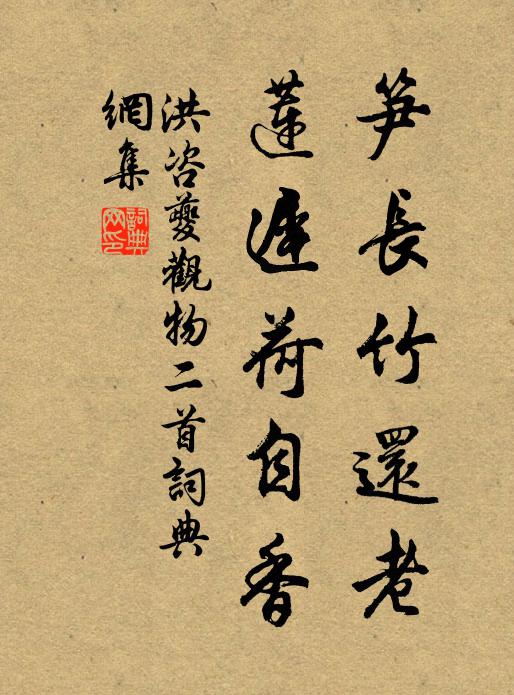 笋長竹還老
蓮遲荷自香
洪咨夔觀物二首詞典
網集
詞典網印